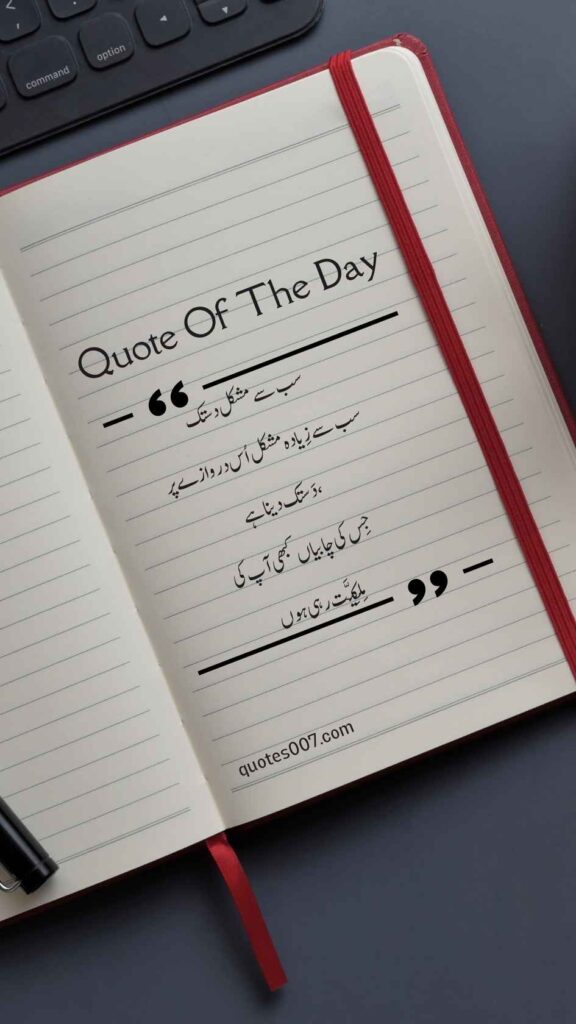 command
option
Quote Of The Day
سب سے مشکل دستک
سب سے زِیادہ مشکل اُس دروازے پر
دَستک دینا ہے،
جِس کی چابیاں کبھی آپ کی
مِلکِیَّت رہی ہوں
quotes007.com